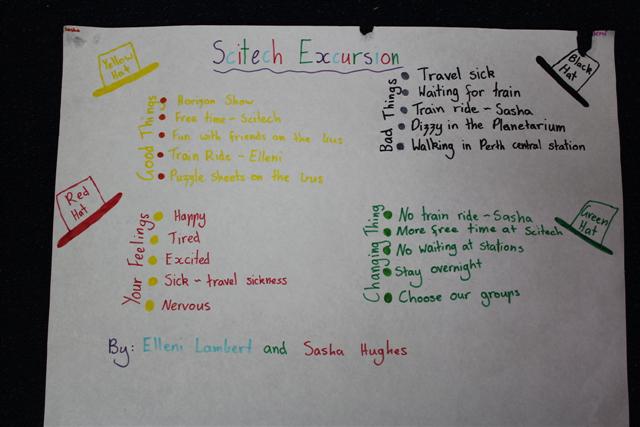 Sasha
Scitech Excursion
Yellow Hat
Good Things
Horizon Show
Free time - Scitech
Fun with friends on the bus
Train Ride - Elleni
Puzzle sheets on the bus
Black Hat
Bad Things
Travel sick
Waiting for train
Train ride - Sasha
Dizzy in the Planetarium
Walking in Perth central station
Red Hat
Your Feelings
Happy
Tired
Excited
Sick - travel sickness
Nervous
Green Hat
Changing Thing
No train ride - Sasha
More free time at Scitech
No waiting at stations
Stay overnight
Choose our groups
By: Elleni Lambert and Sasha Hughes